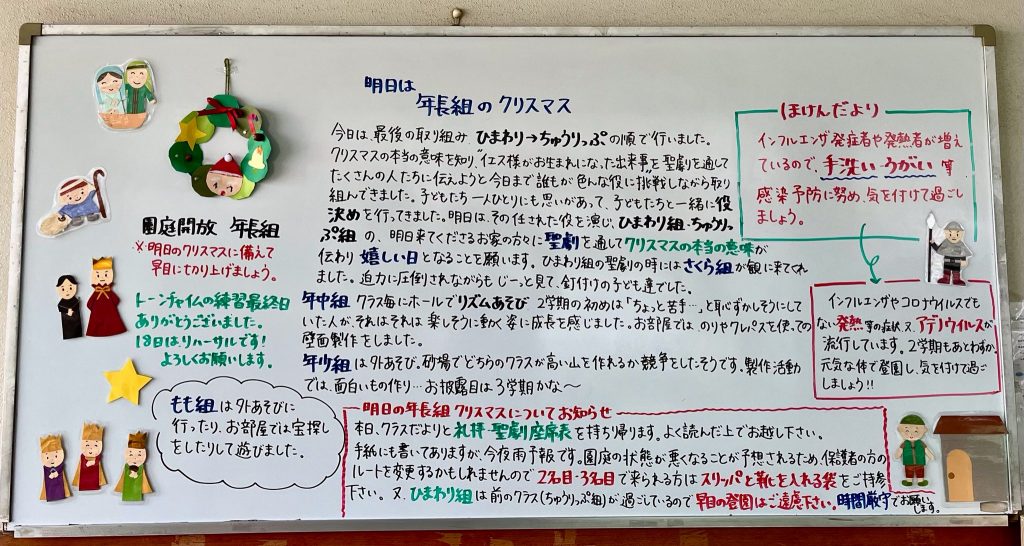 明日は
年長組のクリスマス
今日は、最後の取り組み ひまわり→ちゅうりっぷの順で行いました。
クリスマスの本当の意味を知り、"イエス様がお生まれになった出来事"を聖劇を通して
たくさんの人たちに伝えようと今まで誰もが色んな役に"挑戦しながら取り
組んできました。子どもたち一人ひとりにも思いがあって、子どもたちと一緒に役
決めを行ってきました。明日は、その任された役を演じ、ひまわり組・ちゅうりっ
ぷ組 の、明日来てくださるお家の方々に聖劇を通してクリスマスの本当の意味が
伝わり 嬉しい日となることを願います。ひまわり組の聖劇の時にはさくら組が観に来てくれ
ました。迫力に圧倒されながらも じーっと見て、釘付けの子ども達でした。
年中組 クラス毎にホールでリズムあそび 2学期の初めは「ちょっと苦手…」と恥ずかしそうにして
いた人が、それはそれは 楽しそうに動く姿に成長を感じました。お部屋では、のりやクレパスを使っての
壁面製作をしました。
年少組は外あそび。砂場でどちらのクラスが高い山を作れるか競争をしたそうです。製作活動
では、面白いもの作り…お披露目は3学期かな〜
園庭開放 年長組
※明日のクリスマスに備えて
早目に切り上げましょう。
トーンチャイムの練習最終日
ありがとうございました。
18日はリハーサルです!
よろしくお願いします。
もも組は外あそびに
行ったり、お部屋では宝探し
をしたりして遊びました。
ほけんだより
インフルエンザ発症者や発熱者が増え
ているので、手洗い・うがい 等
感染予防に努め、気を付けて過ごし
ましょう。
インフルエンザやコロナウイルスでも
ない発熱等の症状、又、アデノウイルスが
流行しています。2学期もあとわずか。
元気な体で登園し、気を付けて過ご
しましょう!!
明日の年長組クリスマスについてお知らせ
本日、クラスだよりと礼拝・聖劇座席表を持ち帰ります。よく読んだ上でお越し下さい。
手紙にも書いてありますが、今夜雨予報です。園庭の状態が悪くなることが予想されるため、保護者の方の
ルートを変更するかもしれませんので2名目・3名目で来られる方はスリッパと靴を入れる袋をご持参
下さい。又、ひまわり組は前のクラス(ちゅうりっぷ組)が過ごしているので早目の登園はご遠慮下さい。時間厳守でお願い
します。